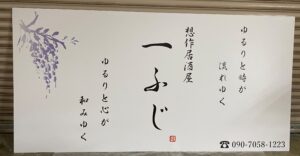 ゆるりと時が
流れゆく
想作居酒屋
一ふじ
ゆるりと心が
和みゆく
☎090-7058-1223